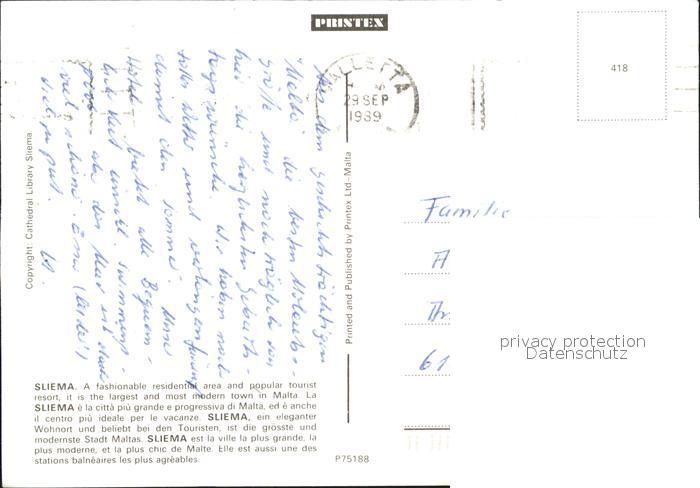 PRINTEX
418
VALLETTA
29 SEP
1989
Aus dem geschichtsträchtigen
Malta die besten Urlaubs-
grüße und nachträglich von
hier die herzlichsten Geburts-
tagswünsche. Wir haben noch
tolles Wetter und verlängern
damit den Sommer. Unser
Hotel bietet alle Bequem-
lichkeit einschl. Swimming-
pool aber das Meer ist
viel schöner. Essen (leider!)
sehr gut.
Familie
A
61
Copyright: Cathedral Library Sliema
Printed and Published by Printex Ltd–Malta
SLIEMA. A fashionable residential area and popular tourist
resort, it is the largest and most modern town in Malta. La
SLIEMA è la città più grande e progressiva di Malta, ed è anche
il centro più ideale per le vacanze. SLIEMA, ein eleganter
Wohnort und beliebt bei den Touristen, ist die grösste und
modernste Stadt Maltas. SLIEMA est la ville la plus grande, la
plus moderne, et la plus chic de Malte. Elle est aussi une des
stations balnéaires les plus agréables.
P75188
privacy protection
Datenschutz